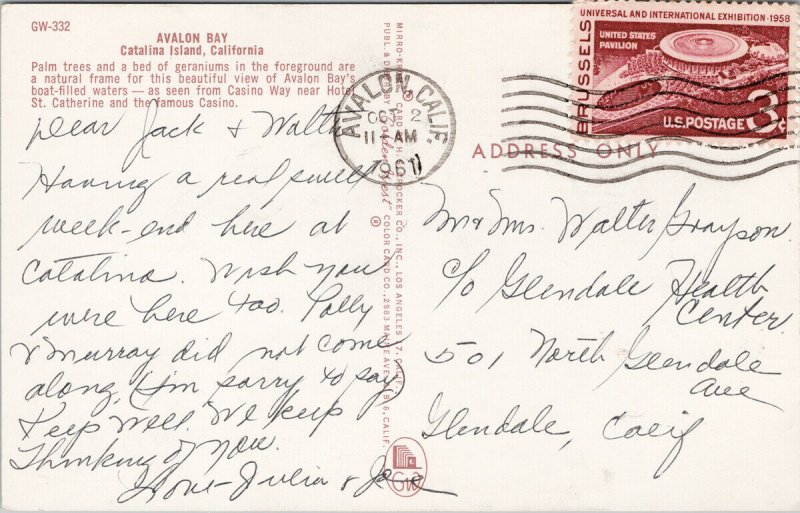 GW-332
AVALON BAY
Catalina Island, California
Palm trees and a bed of geraniums in the foreground are
a natural frame for this beautiful view of Avalon Bay's
boat-filled waters — as seen from Casino Way near Hotel
St. Catherine and the famous Casino.
Dear Jack & Walter
Having a real sweet
week-end here at
Catalina. Wish you
were here too. Polly
& Murray did not come
along, (I'm sorry to say)
Keep well. We keep
Thinking of you.
Love - Julia &
MIRRO-KROME ® CARD BY H. S. CROCKER CO., INC., LOS ANGELES 17, CALIF.
PUBL. & DIST. BY "Golden West" ® COLOR CARD CO., 2583 AVE., CALIF.
GW
AVALON, CALIF.
OCT 2
11-AM
1961
UNIVERSAL AND INTERNATIONAL EXHIBITION·1958
BRUSSELS
UNITED STATES
PAVILION
U.S. POSTAGE 3¢
ADDRESS ONLY
Mr & Mrs. Walter Grayson
c/o Glendale Health
Center.
501 North Glendale
Ave
Glendale, Calif